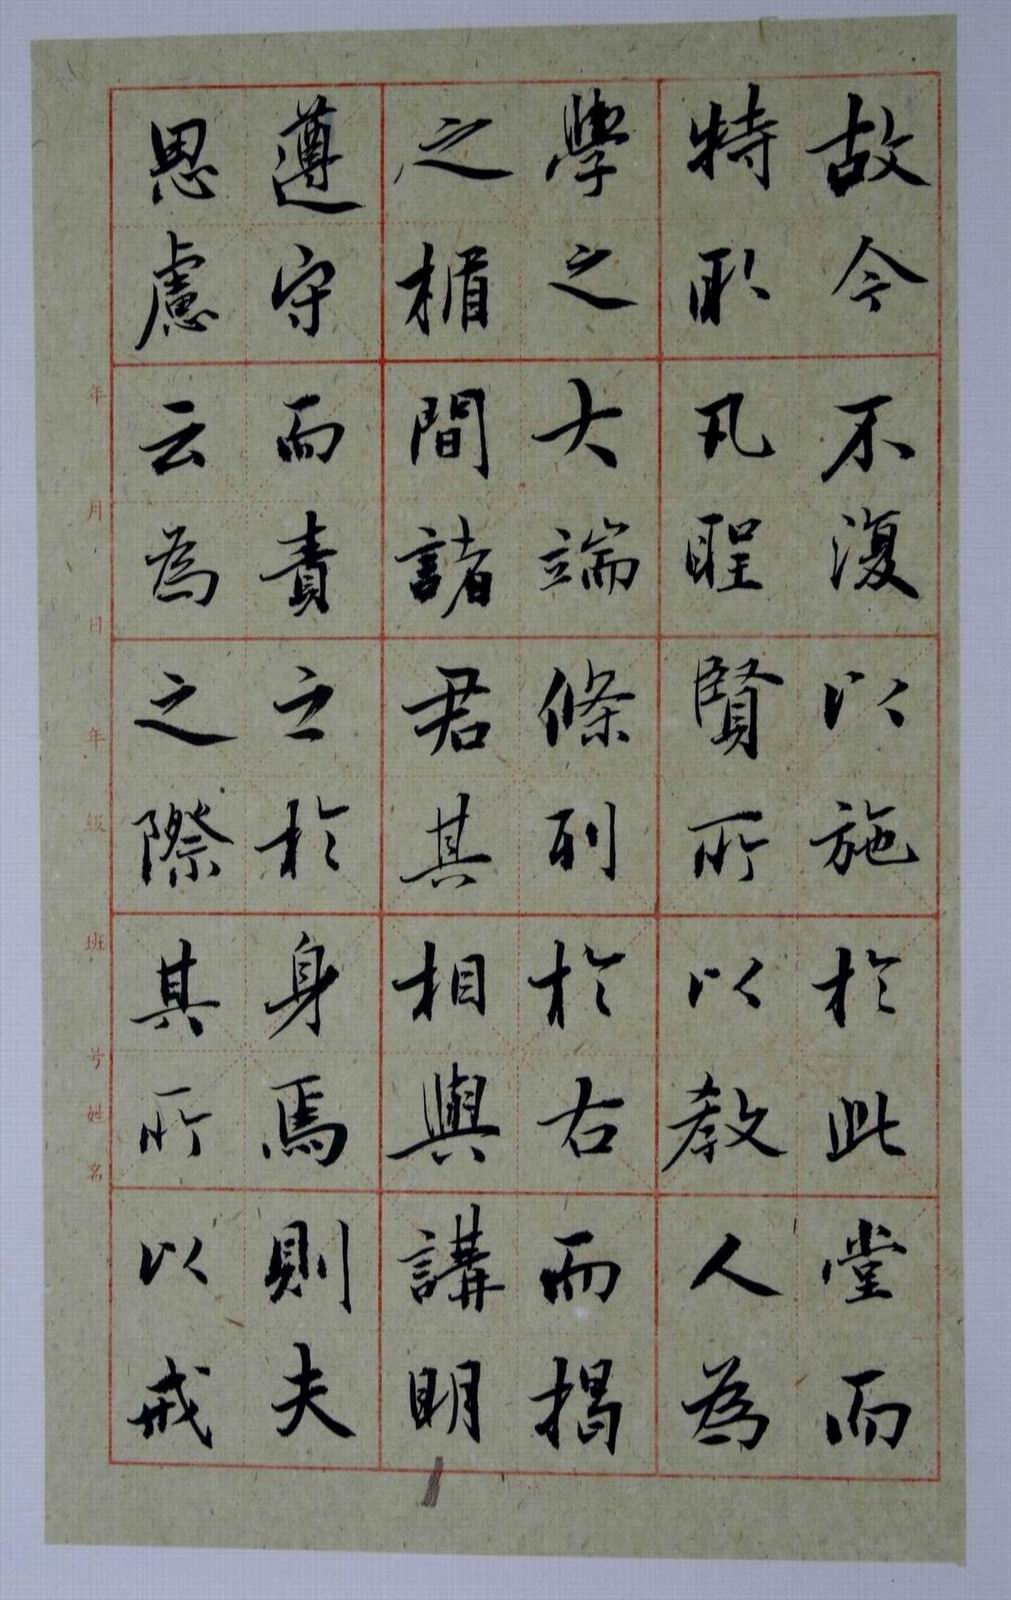 故今不復以施於此堂而
特取凡聖賢所以教人為
學之大端條列於右而揭
之楣間諸君其相與講明
遵守而責之於身焉則夫
思慮云為之際其所以戒
年 月 日 年 级 班 号 姓 名